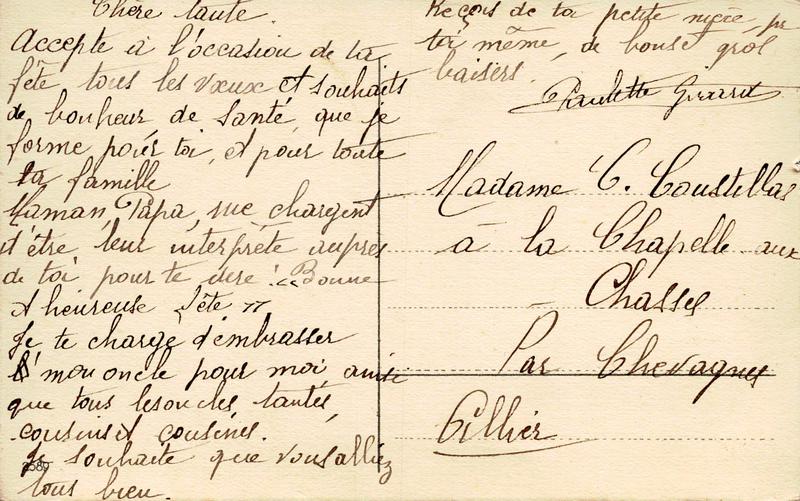 Chère tante.
Accepte à l'occasion de ta
fête tous les vœux et souhaits
de bonheur de santé, que je
forme pour toi, et pour toute
ta famille
Maman, Papa, me chargent
d'être leur interprète auprès
de toi pour te dire : "Bonne
et heureuse fête"
Je te charge d'embrasser
mon oncle pour moi ainsi
que tous les oncles tantes,
cousins et cousines.
Je souhaite que vous alliez
tous bien.
2589
Reçois de ta petite nièce,
toi même, de bonse grol
baisers.
Paulette Girard
Madame C. Coustillas
à la Chapelle aux
- Chasses
Par Chevagnes
Allier